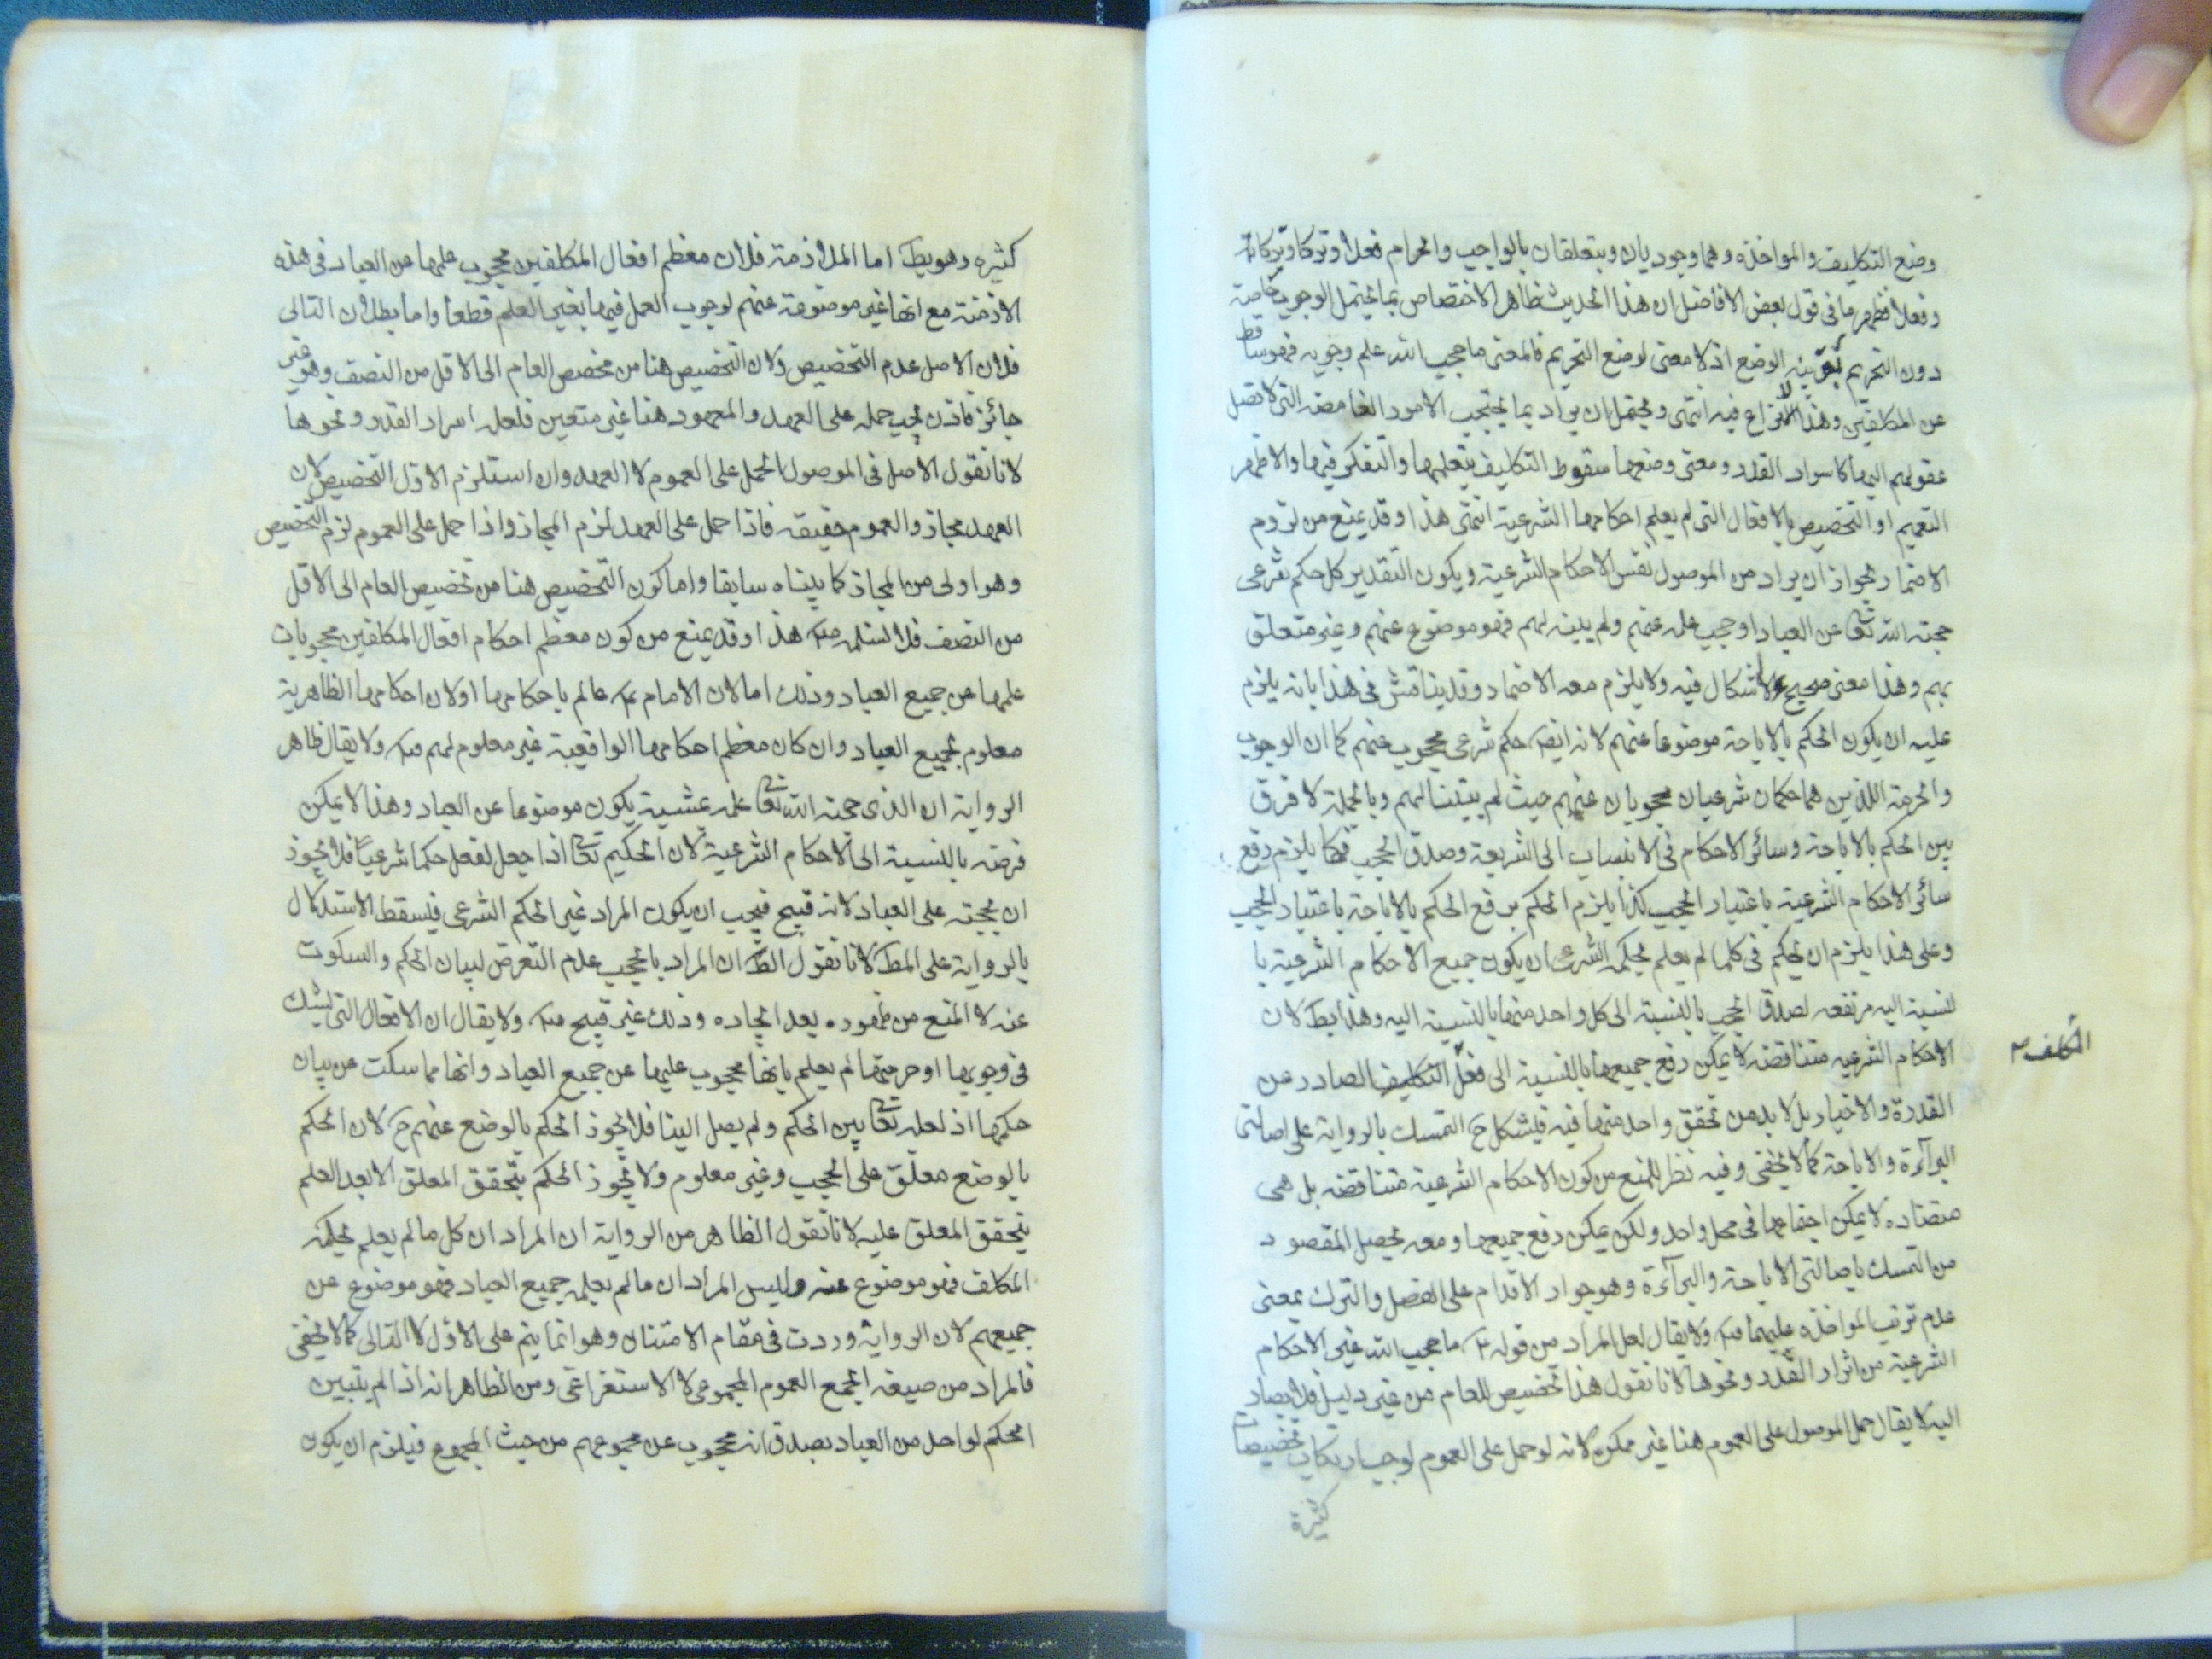 وضع التكليف والمواخذة وهما وجوديان ويتعلقان بالواجب والحرام فعلا وتركا وتركا
وفعلا فظهر ما فى قول بعض الافاضل ان هذا الحديث ظاهر الاختصاص بما يحتمل الوجوب خاصة
دون التحريم بقرينة الوضع اذ لا معنى لوضع التحريم فالمعنى ما حجب الله علم وجوبه فهو ساقط
عن المكلفين وهذا لا نزاع فيه انتهى ويحتمل ان يراد بما يحتجب الامور الغامضة التى لا تصل
عقولهم اليها كاسرار القدر ومعنى وضعها سقوط التكليف بتعلمها والتفكر فيها والاظهر
التعميم او التخصيص بالافعال التى لم يعلم احكامها الشرعية انتهى هذا وقد يمنع من لزوم
الاضمار لجواز ان يراد من الموصول نفس الاحكام الشرعية ويكون التقدير كل حكم شرعى
حجبه الله تعا عن العباد او حجب علمه عنهم ولم يبينه لهم فهو موضوع عنهم وغير متعلق
بهم وهذا معنى صحيح لا اشكال فيه ولا يلزم معه الاضمار وقد يناقش فى هذا بانه يلزم
عليه ان يكون الحكم بالاباحة موضوعا عنهم لانه ايضا حكم شرعى محجوب عنهم كما ان الوجوب
والحرمة اللذين هما حكمان شرعيان محجوبان عنهم حيث لم يبينا لهم وبالجملة لا فرق
بين الحكم بالاباحة وسائر الاحكام فى الانتساب الى الشريعة وصدق الحجب فكما يلزم رفع
سائر الاحكام الشرعية باعتبار الحجب كذا يلزم الحكم برفع الحكم بالاباحة باعتبار الحجب
وعلى هذا يلزم ان يحكم فى كلما لم يعلم بحكمه الشرعى ان يكون جميع الاحكام الشرعية با
لنسبة اليه مرتفعه لصدق الحجب بالنسبة الى كل واحد منها بالنسبة اليه وهذا بط لان
الاحكام الشرعيه متناقضة لا يمكن رفع جميعها بالنسبة الى فعل التكليف الصادر عن
المكلف
القدرة والاختيار بل لا بد من تحقق واحد منها فيه فيشكل ح التمسك بالرواية على اصالتى
البرآءة والاباحة كما لا يخفى وفيه نظر للمنع من كون الاحكام الشرعية متناقضه بل هى
متضاده لا يمكن اجتماعها فى محل واحد ولكن يمكن رفع جميعها ومعه يحصل المقصود
من التمسك باصالتى الاباحة والبرآءة وهو جواز الاقدام على الفعل والترك بمعنى
عدم ترتب المواخذه عليهما ولا يقال لعل المراد من قوله ما حجب الله غير الاحكام
الشرعية من اسرار القدر ونحوها لانا نقول هذا تخصيص للعام من غير دليل فلا يصار
اليه لا يقال حمل الموصول على العموم هنا غير ممكن لانه لو حمل على العموم لوجب ارتكاب تخصيصات
كثيرة
كثيره وهو بط اما الملازمة فلان معظم افعال المكلفين محجوب علمها عن العباد فى هذه
الازمنة مع انها غير موضوعة عنهم لوجوب العمل فيها بغير العلم قطعا واما بطلان التالى
فلان الاصل عدم التخصيص ولان التخصيص هنا من تخصص العام الى الاقل من النصف وهو غير
جائز فاذن يجب حمله على العهد والمعهود هنا غير متعين فلعله اسرار القدر ونحوها
لانا نقول الاصل فى الموصول الحمل على العموم لا العهد وان استلزم الاول التخصيص لان
العهد مجاز والعموم حقيقه فاذا حمل على العهد لزم المجاز واذا حمل على العموم لزم التخصيص
وهو اولى من المجاز كما بيناه سابقا واما كون التخصيص هنا من تخصيص العام الى الاقل
من النصف فلا نسلمه هذا وقد يمنع من كون معظم احكام افعال المكلفين محجوبات
علمها عن جميع العباد وذلك اما لان الامام عالم باحكامها او لان احكامها الظاهرية
معلوم لجميع العباد وان كان معظم احكامها الواقعية غير معلوم لهم ولا يقال ظاهر
الرواية ان الذى حجبه الله تعا علمه بمشية يكون موضوعا عن العباد وهذا لا يمكن
فرضه بالنسبة الى الاحكام الشرعية لان الحكيم تعا اذا جعل لفعل حكما شرعيا فلا يجوز
ان يحجبه على العباد لانه قبيح فيجب ان يكون المراد غير الحكم الشرعى فيسقط الاستدلال
بالرواية على المط لانا نقول الظ ان المراد بالحجب عدم التعرض لبيان الحكم والسكوت
عنه لا المنع من ظهوره بعد ايجاده وذلك غير قبيح ولا يقال ان الافعال التى يشك
فى وجوبها او حرمتها لم يعلم بانها محجوب عليها عن جميع العباد وانها مما سكت عن بيان
حكمها اذ لعله تعا بين الحكم ولم يصل الينا فلا يجوز الحكم بالوضع عنهم ح لان الحكم
بالوضع معلق على الحجب وغير معلوم ولا يجوز الحكم بتحقق المعلق الا بعد العلم
بتحقق المعلق عليه لانا نقول الظاهر من الرواية ان المراد ان كل ما لم يعلم بحكمه
المكلف فهو موضوع عنه وليس المراد ان ما لم يعلمه جميع العباد فهو موضوع عن
جميعهم لان الرواية وردت فى مقام الامتنان وهو انما يتم على الاول لا الثانى كما لا يخفى
فالمراد من صيغه الجمع العموم المجموعى لا الاستغراقى ومن الظاهر انه اذا لم يتبين
الحكم لواحد من العباد يصدق انه محجوب عن مجموعهم من حيث المجموع فيلزم ان يكون